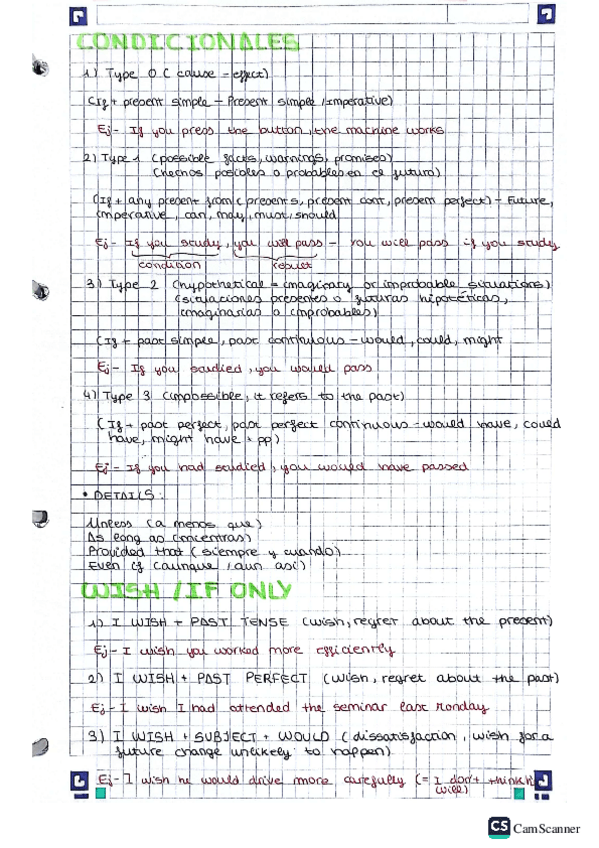 CONDICIONALES
1) Type 0 (cause - effect)
(If + present simple - Present simple / imperative)
Ej - If you press the button, the machine works
2) Type 1 (possible facts, warnings, promises)
(hechos posibles o probables en el futuro)
(If + any present from (presents, present cont, present perfect) - Future,
imperative, can, may, must, should
Ej - If you study, you will pass - You will pass if you study
condition result
3) Type 2 (hypothetical = imaginary or improbable situations)
(situaciones presentes o futuras hipotéticas,
imaginarias o improbables)
(If + past simple, past continuous - would, could, might
Ej - If you studied, you would pass
4) Type 3 (impossible, it refers to the past)
(If + past perfect, past perfect continuous - would have, could
have, might have + pp)
Ej - If you had studied, you would have passed
• DETAILS:
Unless (a menos que)
As long as (mientras)
Provided that (siempre y cuando)
Even if (aunque, aun así)
WISH / IF ONLY
1) I WISH + PAST TENSE (wish, regret about the present)
Ej - I wish you worked more efficiently
2) I WISH + PAST PERFECT (wish, regret about the past)
Ej - I wish I had attended the seminar last Monday
3) I WISH + SUBJECT + WOULD (dissatisfaction, wish for a
future change unlikely to happen)
Ej - I wish he would drive more carefully (= I don't think he
will)
CS CamScanner